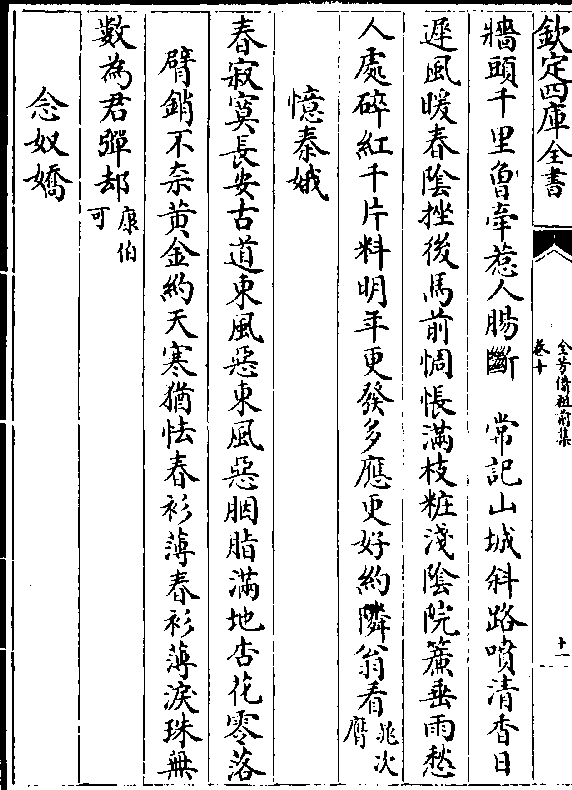 欽定四庫全書
全芳備祖前集
卷十
十一
牆頭千里魯牽惹人腸斷　常記山城斜路噴清香日
遲風暖春陰挫後馬前惆悵滿枝粧淺陰院簾垂雨愁
人處碎紅千片料明年更發多應更好約隣翁看晁次膺
憶秦娥
春寂寞長安古道東風惡東風惡胭脂滿地杏花零落
臂銷不奈黄金約天寒猶怯春衫薄春衫薄淚珠無
數為君彈却康伯可
念奴嬌